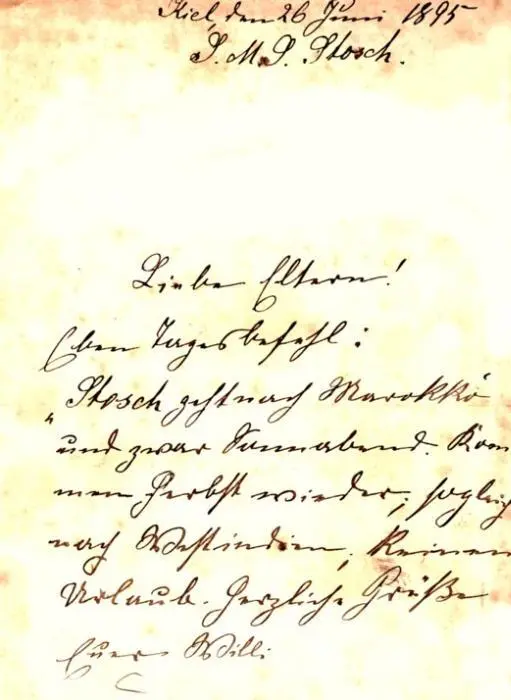 Kiel, den 26 Juni 1895
S. M. S. Stosch.
Liebe Eltern!
Eben Tagesbefehl:
„Stosch geht nach Marokko
und zwar Sonnabend. Kom
men Herbst wieder, sogleich
nach Westindien, keinen
Urlaub. Herzliche Grüße
Euer Willi